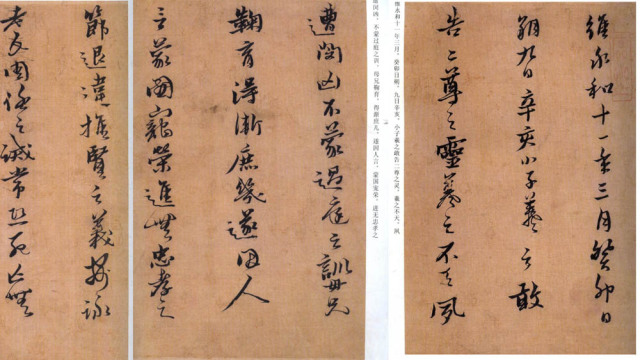 維永和十一年三月癸卯日
朔九日辛亥小子羲之敢
告二尊之靈羲之不天夙
维永和十一年三月，癸卯日朔，九日辛亥，小子羲之敢告二尊之灵，羲之不天，夙
遭閔凶不蒙過庭之訓母兄
鞠育得漸庶幾遂因人
乏蒙國寵榮進無忠孝之
遭闵凶，不蒙过庭之训，母兄鞠育，得渐庶几，遂因人乏，蒙国宠荣，进无忠孝之
節退違推賢之義每詠
老氏周任之誡常恐死亡無